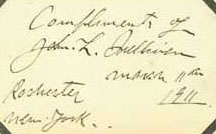 Compliments of
John. L. Sullivan
March 11th
Rochester 1911
New-York.